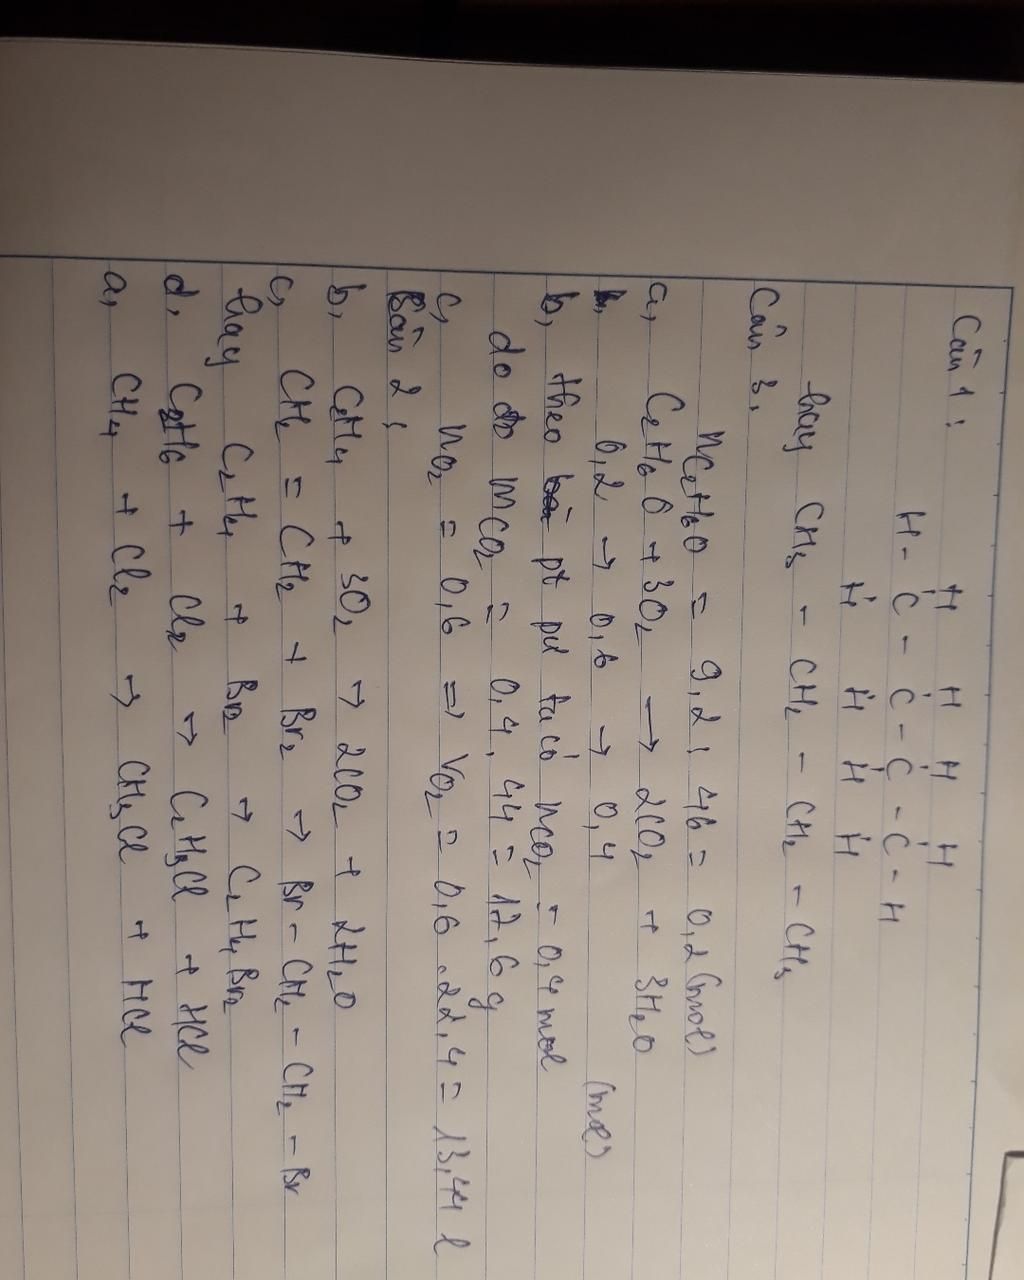 Câu 1:
H H H H
H - C - C - C - C - H
H H H H
hay CH3 - CH2 - CH2 - CH3
Câu 3,
nC2H6O = 9,2 : 46 = 0,2 (mol)
a, C2H6O + 3O2 → 2CO2 + 3H2O
0,2 → 0,6 → 0,4 (mol)
b, theo pt pư ta có nCO2 = 0,4 mol
do đó mCO2 = 0,4 . 44 = 17,6 g
c, nO2 = 0,6 => VO2 = 0,6 . 22,4 = 13,44 l
Bài 2:
b, C2H4 + 3O2 → 2CO2 + 2H2O
c, CH2 = CH2 + Br2 → Br - CH2 - CH2 - Br
hay C2H4 + Br2 → C2H4Br2
d, C2H6 + Cl2 → C2H5Cl + HCl
a, CH4 + Cl2 → CH3Cl + HCl